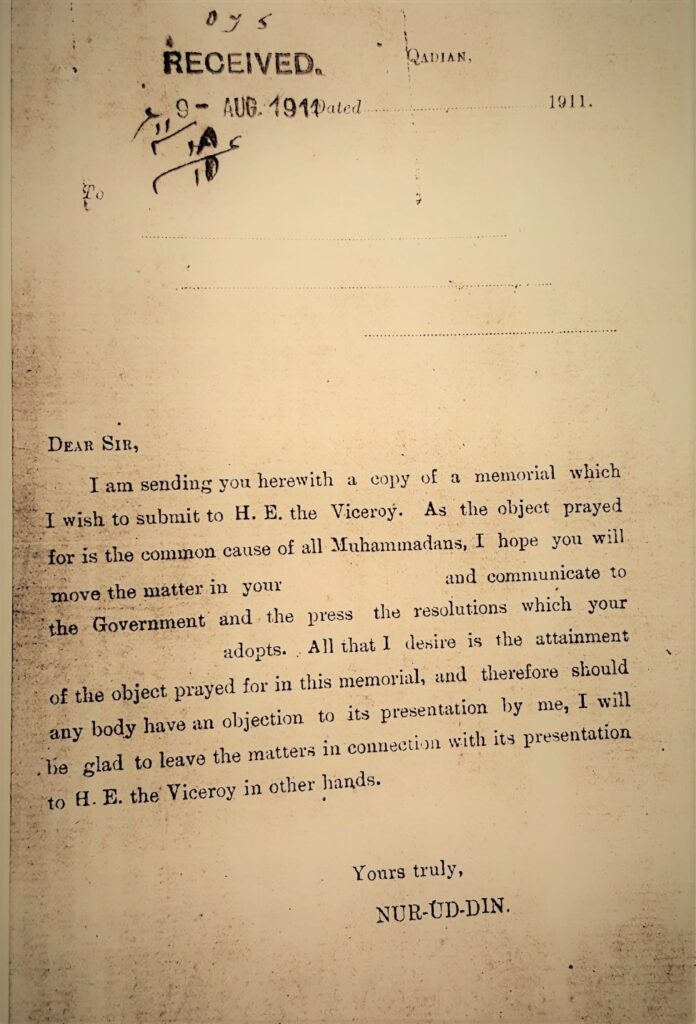 RECEIVED.
QADIAN,
9- AUG. 1911 Dated 1911.
To
DEAR SIR,
I am sending you herewith a copy of a memorial which
I wish to submit to H. E. the Viceroy. As the object prayed
for is the common cause of all Muhammadans, I hope you will
move the matter in your and communicate to
the Government and the press the resolutions which your
adopts. All that I desire is the attainment
of the object prayed for in this memorial, and therefore should
any body have an objection to its presentation by me, I will
be glad to leave the matters in connection with its presentation
to H. E. the Viceroy in other hands.
Yours truly,
NUR-UD-DIN.